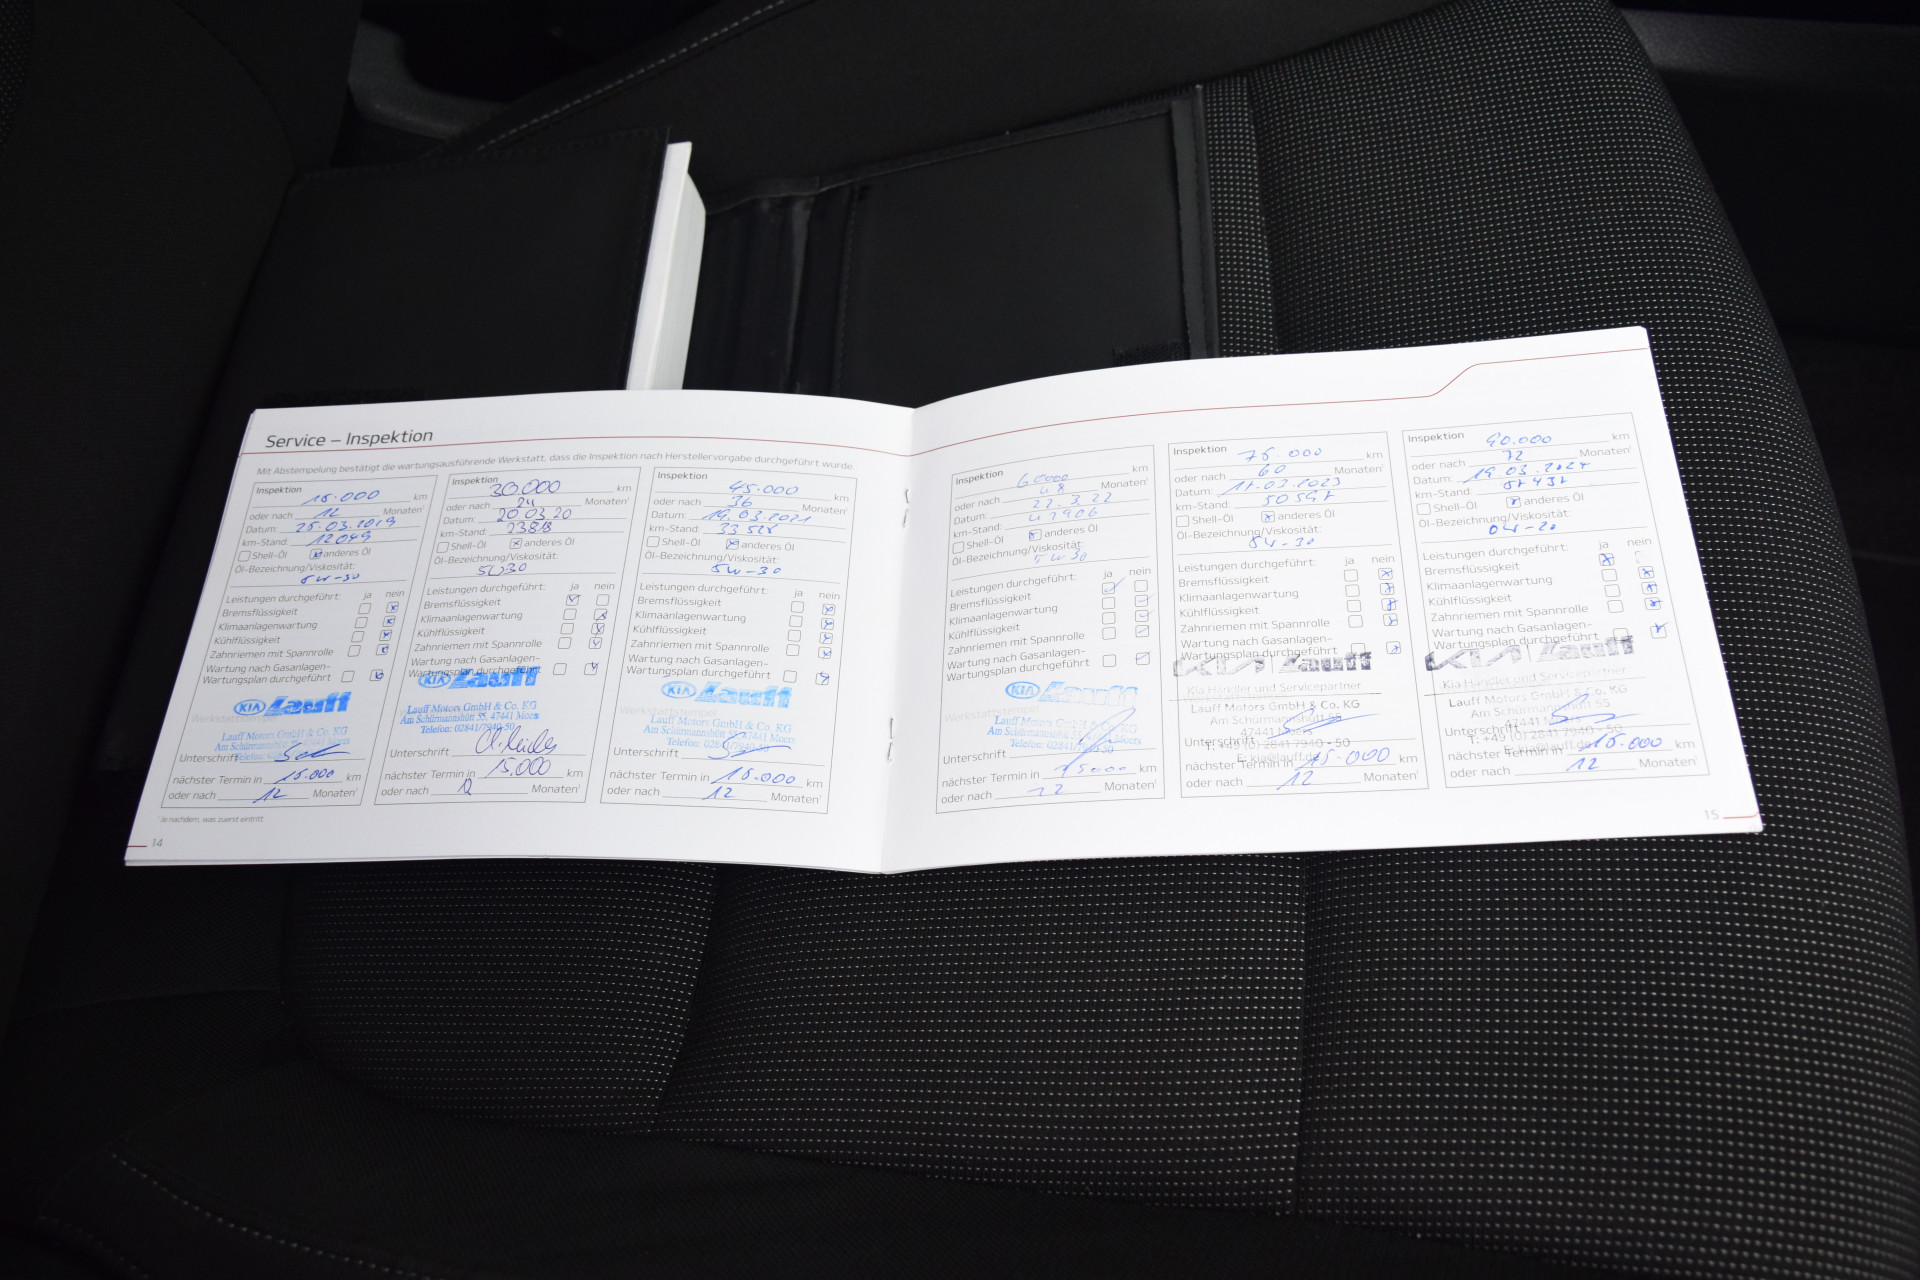 Service – Inspektion
Mit Abstempelung bestätigt die wartungsausführende Werkstatt, dass die Inspektion nach Herstellervorgabe durchgeführt wurde.
Inspektion 15.000 km
oder nach 12 Monaten¹
Datum: 25.03.2019
km-Stand: 12049
Shell-Öl anderes Öl
Öl-Bezeichnung/Viskosität:
5W-30
Leistungen durchgeführt: ja nein
Bremsflüssigkeit
Klimaanlagenwartung
Kühlflüssigkeit
Zahnriemen mit Spannrolle
Wartung nach Gasanlagen-
Wartungsplan durchgeführt
KIA Lauff
Werkstattstempel
Lauff Motors GmbH & Co. KG
Am Schürmannshütt 55, 47441 Moers
Unterschrift
nächster Termin in 15.000 km
oder nach 12 Monaten¹
¹ Je nachdem, was zuerst eintritt
14
Inspektion 30.000 km
oder nach 24 Monaten¹
Datum: 20 03 20
km-Stand:
Shell-Öl anderes Öl
Öl-Bezeichnung/Viskosität:
5W30
Leistungen durchgeführt: ja nein
Bremsflüssigkeit
Klimaanlagenwartung
Kühlflüssigkeit
Zahnriemen mit Spannrolle
Wartung nach Gasanlagen-
Wartungsplan durchgeführt
KIA Lauff
Lauff Motors GmbH & Co. KG
Am Schürmannshütt 55, 47441 Moers
Telefon: 02841/7940-50
Unterschrift
nächster Termin in 15.000 km
oder nach 12 Monaten¹
Inspektion 45.000 km
oder nach 36 Monaten¹
Datum: 19.03.2021
km-Stand: 33
Shell-Öl anderes Öl
Öl-Bezeichnung/Viskosität:
5W-30
Leistungen durchgeführt: ja nein
Bremsflüssigkeit
Klimaanlagenwartung
Kühlflüssigkeit
Zahnriemen mit Spannrolle
Wartung nach Gasanlagen-
Wartungsplan durchgeführt
KIA Lauff
Werkstattstempel
Lauff Motors GmbH & Co. KG
Am Schürmannshütt 55, 47441 Moers
Telefon: 02841/7940-50
Unterschrift
nächster Termin in 15.000 km
oder nach 12 Monaten¹
Inspektion 60000 km
oder nach 48 Monaten¹
Datum: 22.3.22
km-Stand: 41906
Shell-Öl anderes Öl
Öl-Bezeichnung/Viskosität:
5W30
Leistungen durchgeführt: ja nein
Bremsflüssigkeit
Klimaanlagenwartung
Kühlflüssigkeit
Zahnriemen mit Spannrolle
Wartung nach Gasanlagen-
Wartungsplan durchgeführt
KIA Lauff
Werkstattstempel
Lauff Motors GmbH & Co. KG
Am Schürmannshütt 55, 47441 Moers
Telefon: 02841/7940-50
Unterschrift
nächster Termin in 15000 km
oder nach 12 Monaten¹
Inspektion 75.000 km
oder nach 60 Monaten¹
Datum: 2023
km-Stand:
Shell-Öl anderes Öl
Öl-Bezeichnung/Viskosität:
5W-30
Leistungen durchgeführt: ja nein
Bremsflüssigkeit
Klimaanlagenwartung
Kühlflüssigkeit
Zahnriemen mit Spannrolle
Wartung nach Gasanlagen-
Wartungsplan durchgeführt
KIA Lauff
Kia Händler und Servicepartner
Lauff Motors GmbH & Co. KG
Am Schürmannshütt 55
47441 Moers
Unterschrift
T: +49 (0) 2841 7940 - 50
E: kia@lauff.de
nächster Termin in 15.000 km
oder nach 12 Monaten¹
Inspektion 90.000 km
oder nach 72 Monaten¹
Datum: 19.03.2024
km-Stand:
Shell-Öl anderes Öl
Öl-Bezeichnung/Viskosität:
0W-20
Leistungen durchgeführt: ja nein
Bremsflüssigkeit
Klimaanlagenwartung
Kühlflüssigkeit
Zahnriemen mit Spannrolle
Wartung nach Gasanlagen-
Wartungsplan durchgeführt
KIA Lauff
Kia Händler und Servicepartner
Lauff Motors GmbH & Co. KG
Am Schürmannshütt 55
47441 Moers
Unterschrift
T: +49 (0) 2841 7940 - 50
E: kia@lauff.de
nächster Termin in 15.000 km
oder nach 12 Monaten¹
15